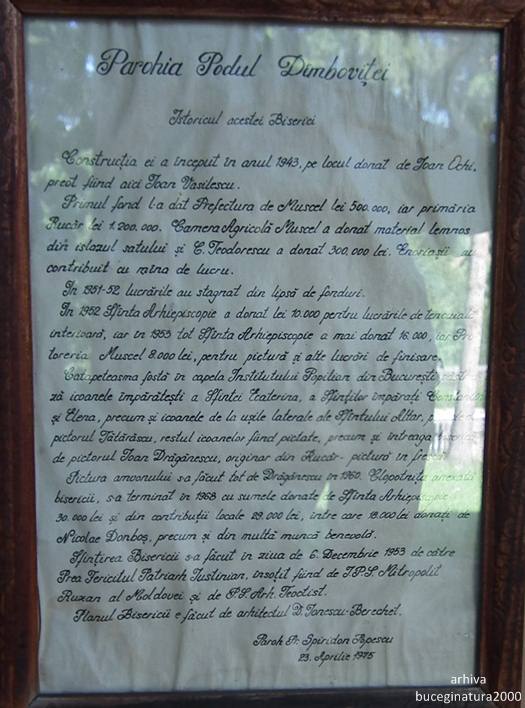 Parohia Podul Dîmboviței
Istoricul acestei Biserici
Construcția ei a început în anul 1943, pe locul donat de Ioan Ochi,
preot fiind aici Ioan Vasilescu.
Primul fond l-a dat Prefectura de Muscel lei 500.000, iar primăria
Rucăr lei 1.200.000. Camera Agricolă Muscel a donat material lemnos
din islazul satului și C. Teodorescu a donat 300.000 lei. Enoriașii au
contribuit cu mîna de lucru.
În 1951-52 lucrările au stagnat din lipsă de fonduri.
În 1952 Sfînta Arhiepiscopie a donat lei 10.000 pentru lucrările de tencuială
interioară, iar în 1953 tot Sfînta Arhiepiscopie a mai donat 16.000, iar
Muscel 8.000 lei, pentru pictură și alte lucrări de finisare.
Catapeteasma fostă în capela Institutului Popilian din București
ză icoanele împărătești a Sfintei Ecaterina, a Sfinților împărați Constantin
și Elena, precum și icoanele de la ușile laterale ale Sfîntului Altar,
pictorul Tătărăscu, restul icoanelor fiind pictate, precum și întreaga
de pictorul Ioan Drăgănescu, originar din Rucăr- pictură în
Pictura amvonului s-a făcut tot de Drăgănescu în 1960. Clopotnița anexată
bisericii, s-a terminat în 1968 cu sumele donate de Sfînta Arhiepiscopie
30.000 lei și din contribuții locale 29.000 lei, între care 18.000 lei donați de
Nicolae Donboș, precum și din multă muncă benevolă.
Sfințirea Bisericii s-a făcut în ziua de 6 Decembrie 1953 de către
Prea Fericitul Patriarh Iustinian, însoțit fiind de I.P.S. Mitropolit
Rusan al Moldovei și de P.S. Arh. Teoctist.
Planul Bisericii e făcut de arhitectul D. Ionescu-Berechet.
Paroh Pr. Spiridon Popescu
23. Aprilie 1975
arhiva
buceginatura2000